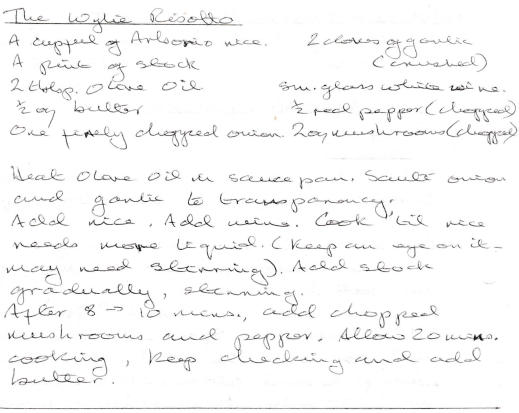 The Wylie Risotto
A cupful of Arborio rice. 2 cloves of garlic
A pint of stock (crushed)
2 tblsp. Olive Oil sm. glass white wine.
½ oz butter ½ red pepper (chopped)
One finely chopped onion. 2oz mushrooms (chopped)
Heat Olive Oil in saucepan. Sauté onion
and garlic to transparency.
Add rice. Add wine. Cook 'til rice
needs more liquid. (Keep an eye on it -
may need stirring). Add stock
gradually, stirring.
After 8 → 10 mins., add chopped
mushrooms and pepper. Allow 20 mins.
cooking, keep checking and add
butter.